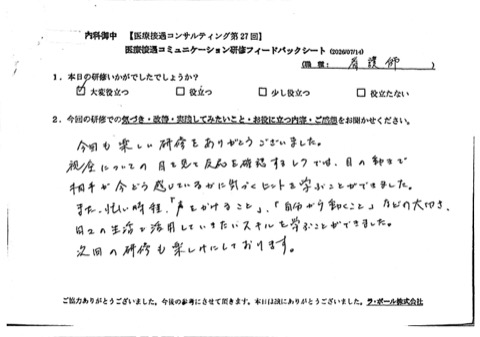 内科御中 【医療接遇コンサルティング第27回】
医療接遇コミュニケーション研修フィードバックシート (2026/07/14)
(職種: 看護師 )
1. 本日の研修いかがでしたでしょうか?
☑ 大変役立つ □ 役立つ □ 少し役立つ □ 役立たない
2. 今回の研修での気づき・改善・実践してみたいこと・お役に立つ内容・ご感想をお聞かせください。
今回も楽しい研修をありがとうございました。
視座についての目を見て反応を確認するレクでは、目の動きで
相手が今どう感じているかに気づくヒントを学ぶことができました。
また、忙しい時程、「声をかけること」、「自分から動くこと」などの大切さ、
日々の生活で活用していきたいスキルを学ぶことができました。
次回の研修も楽しみにしております。
ご協力ありがとうございました。今後の参考にさせて頂きます。本日は誠にありがとうございました。 ラ・ポール株式会社